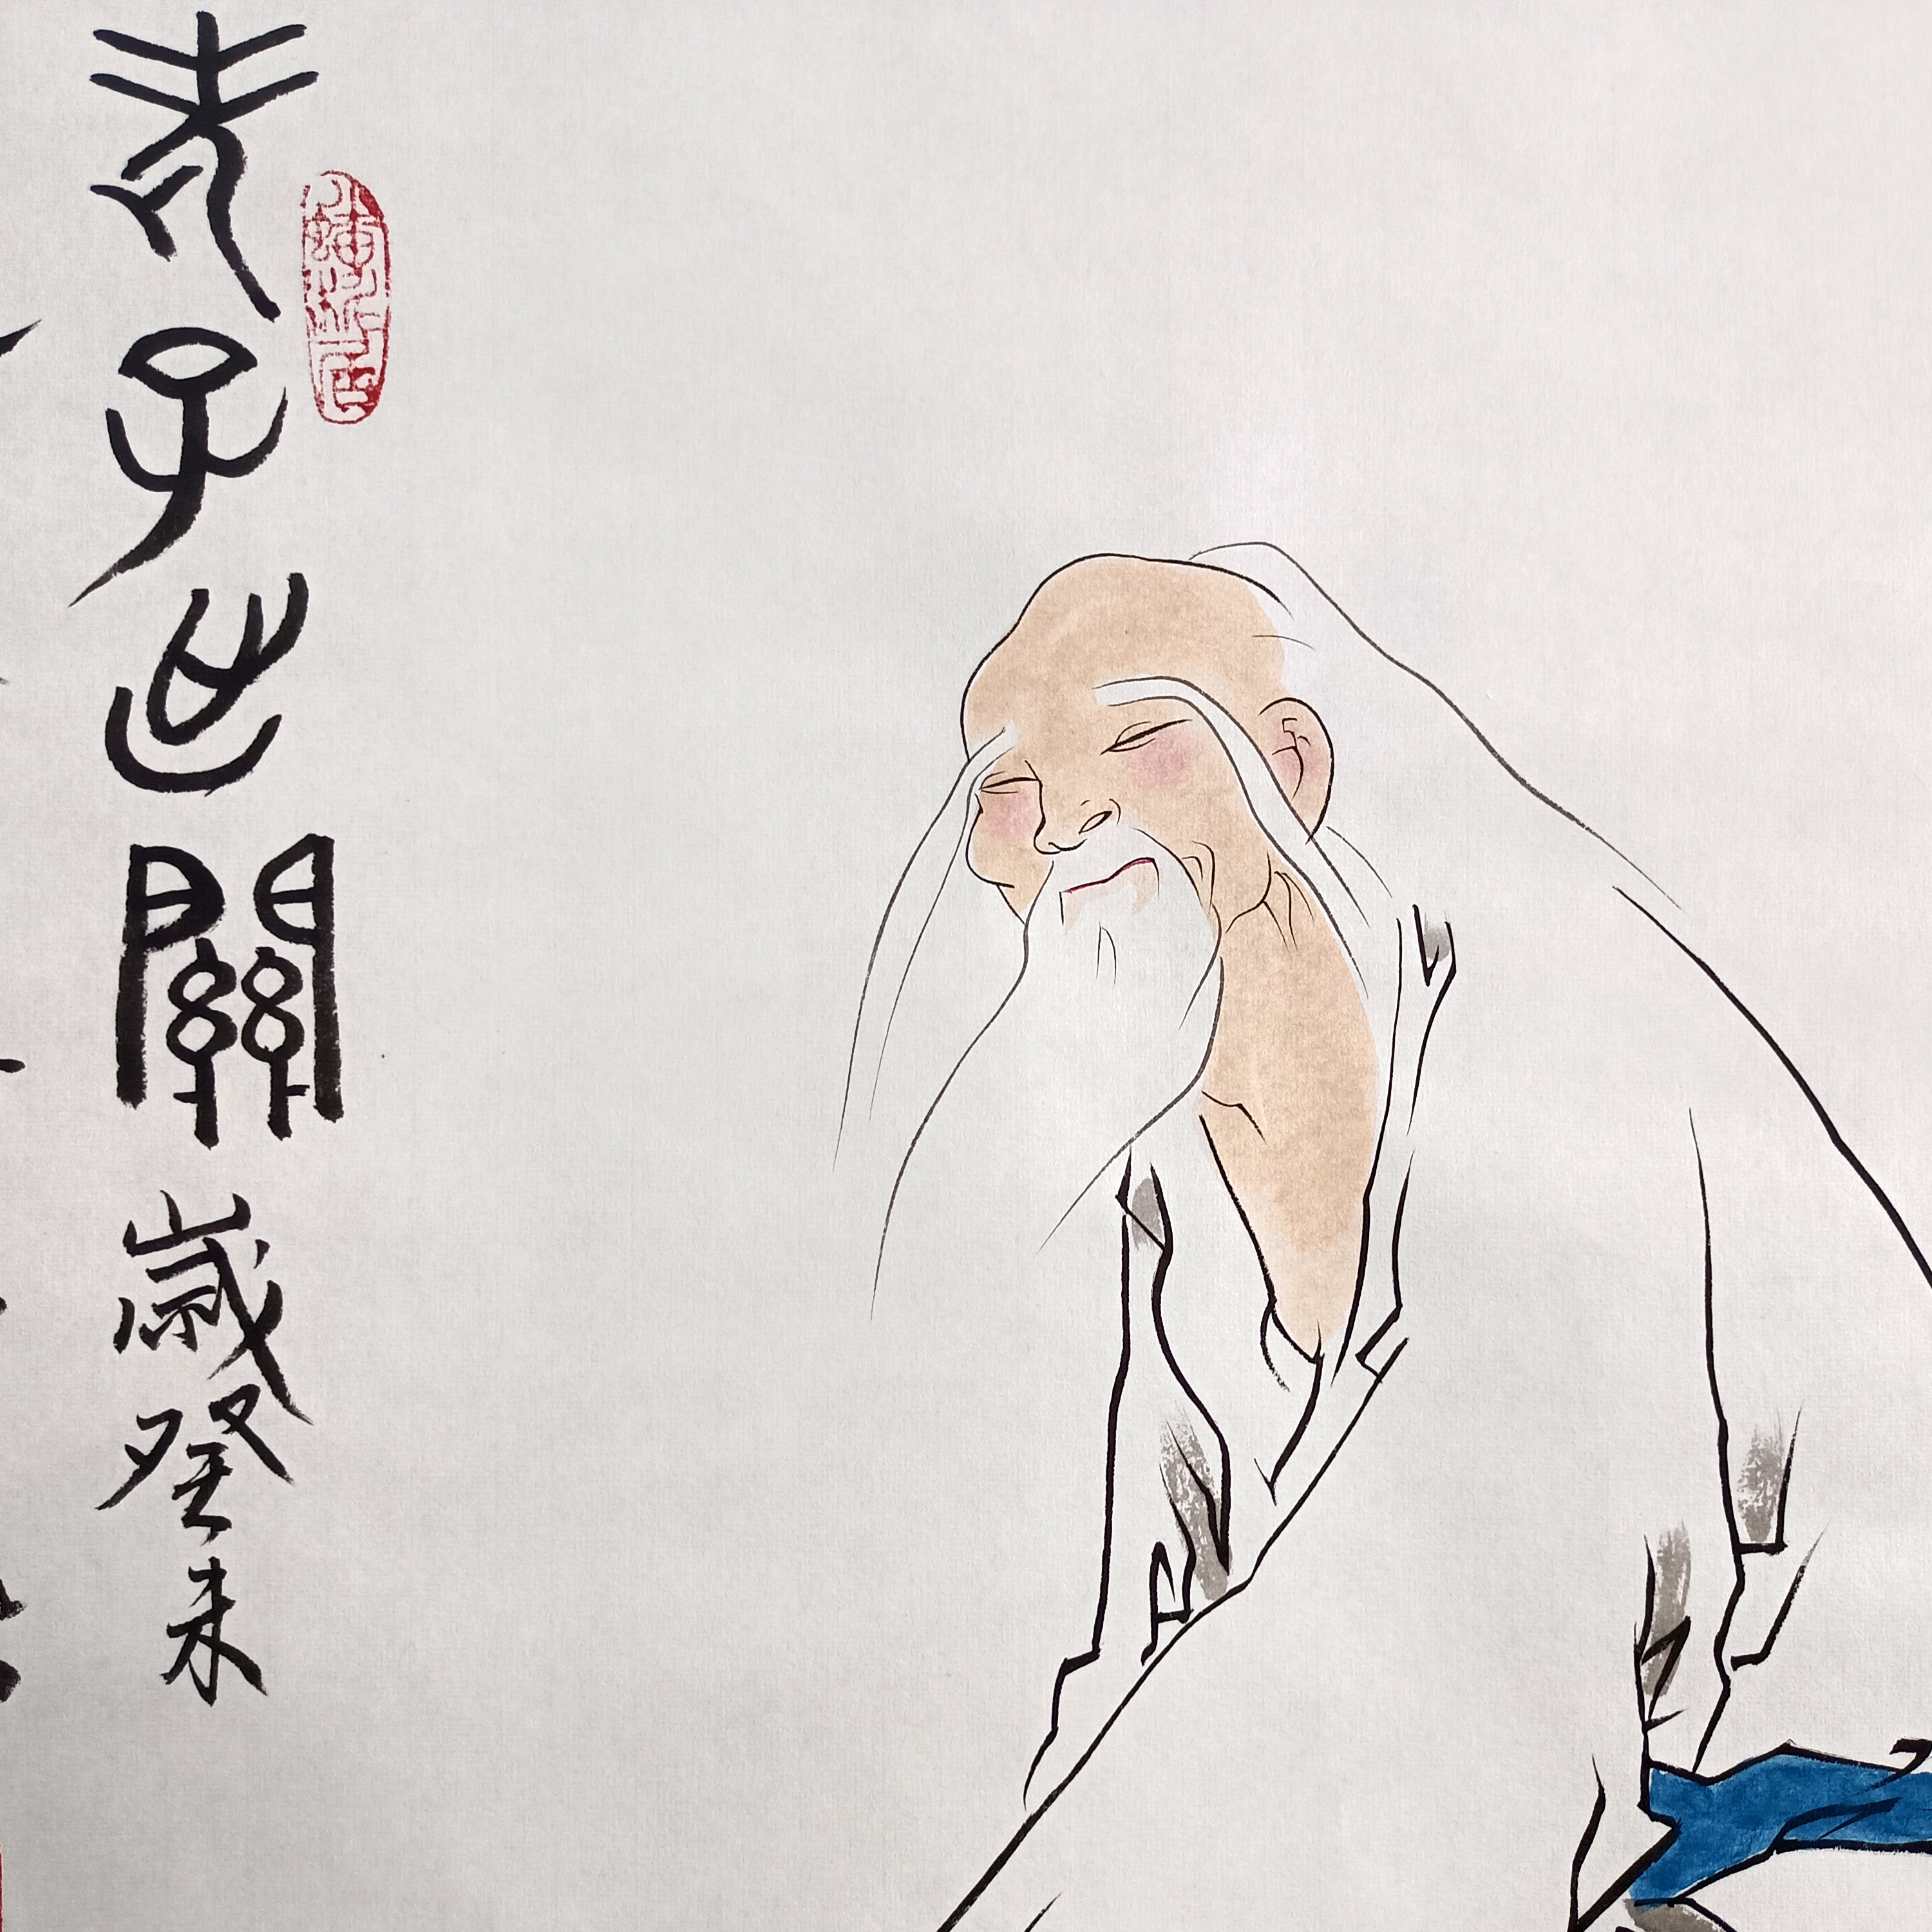 老子出關歲癸未